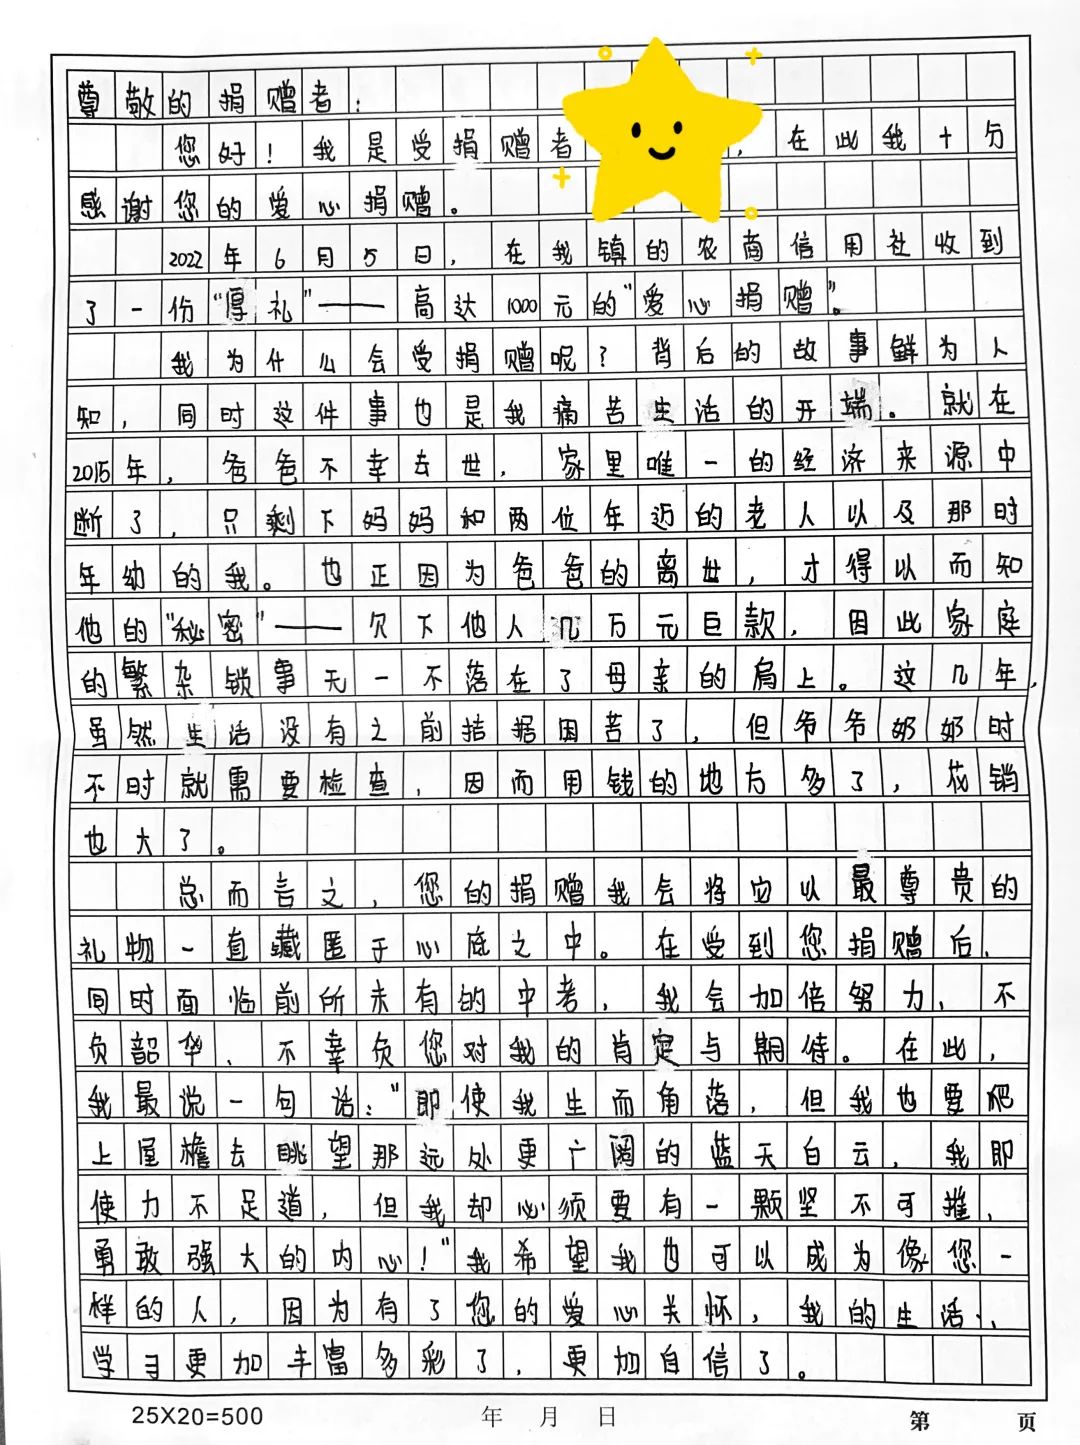 尊敬的捐赠者：
您好！我是受捐赠者，在此我十分
感谢您的爱心捐赠。
2022年6月5日，在我镇的农商信用社收到
了一份“厚礼”——高达1000元的“爱心捐赠”。
我为什么会受捐赠呢？背后的故事鲜为人
知，同时这件事也是我痛苦生活的开端。就在
2015年，爸爸不幸去世，家里唯一的经济来源中
断了，只剩下妈妈和两位年迈的老人以及那时
年幼的我。也正因为爸爸的离世，才得以而知
他的“秘密”——欠下他人几万元巨款，因此家庭
的繁杂锁事无一不落在了母亲的肩上。这几年，
虽然生活没有之前拮据困苦了，但爷爷奶奶时
不时就需要检查，因而用钱的地方多了，花销
也大了。
总而言之，您的捐赠我会将它以最尊贵的
礼物一直藏匿于心底之中。在受到您捐赠后，
同时面临前所未有的中考，我会加倍努力，不
负韶华、不辜负您对我的肯定与期待。在此，
我最说一句话：“即使我生而角落，但我也要爬
上屋檐去眺望那远处更广阔的蓝天白云，我即
使力不足道，但我却必须要有一颗坚不可摧、
勇敢强大的内心！”我希望我也可以成为像您一
样的人，因为有了您的爱心关怀，我的生活、
学习更加丰富多彩了，更加自信了。
25X20=500 年 月 日 第 页